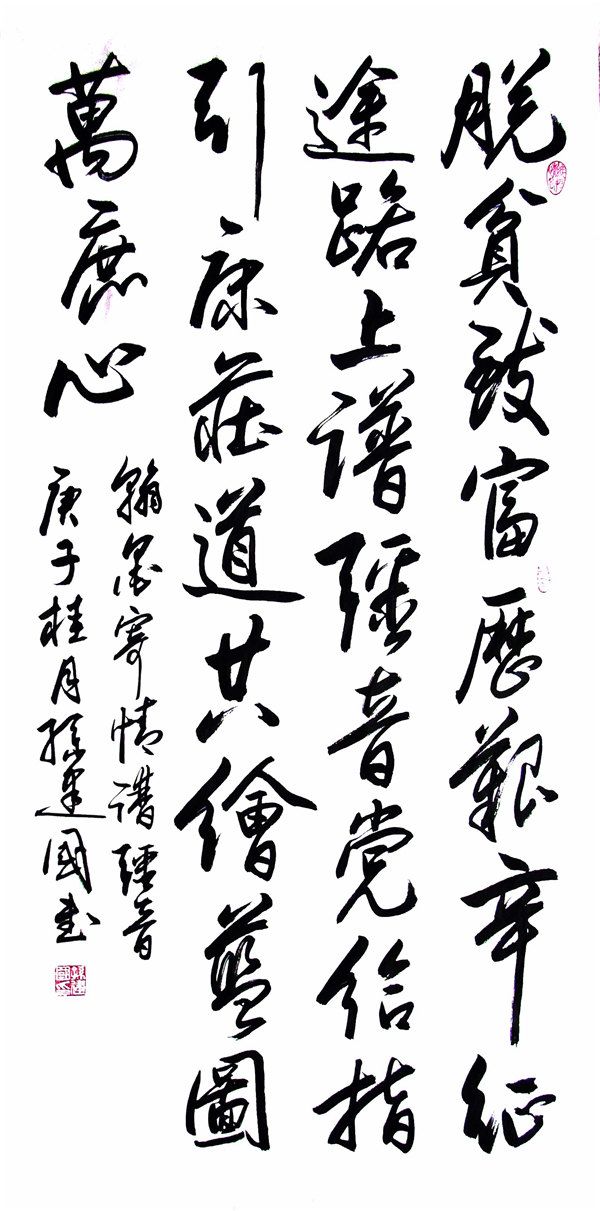 脱貧致富歷艱辛征
途路上譜强音党給指
引康莊道共繪藍圖
萬庶心
翰墨寄情譜强音
庚子桂月孫建國書